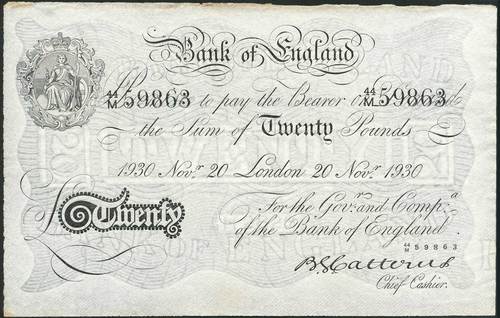 Bank of England
44/M 59863 to pay the Bearer on 44/M 59863
the Sum of Twenty Pounds
1930 Novr. 20 London 20 Novr. 1930
£Twenty
For the Govr. and Compa.
of the Bank of England.
44/M 59863
B G Catterns
Chief Cashier.